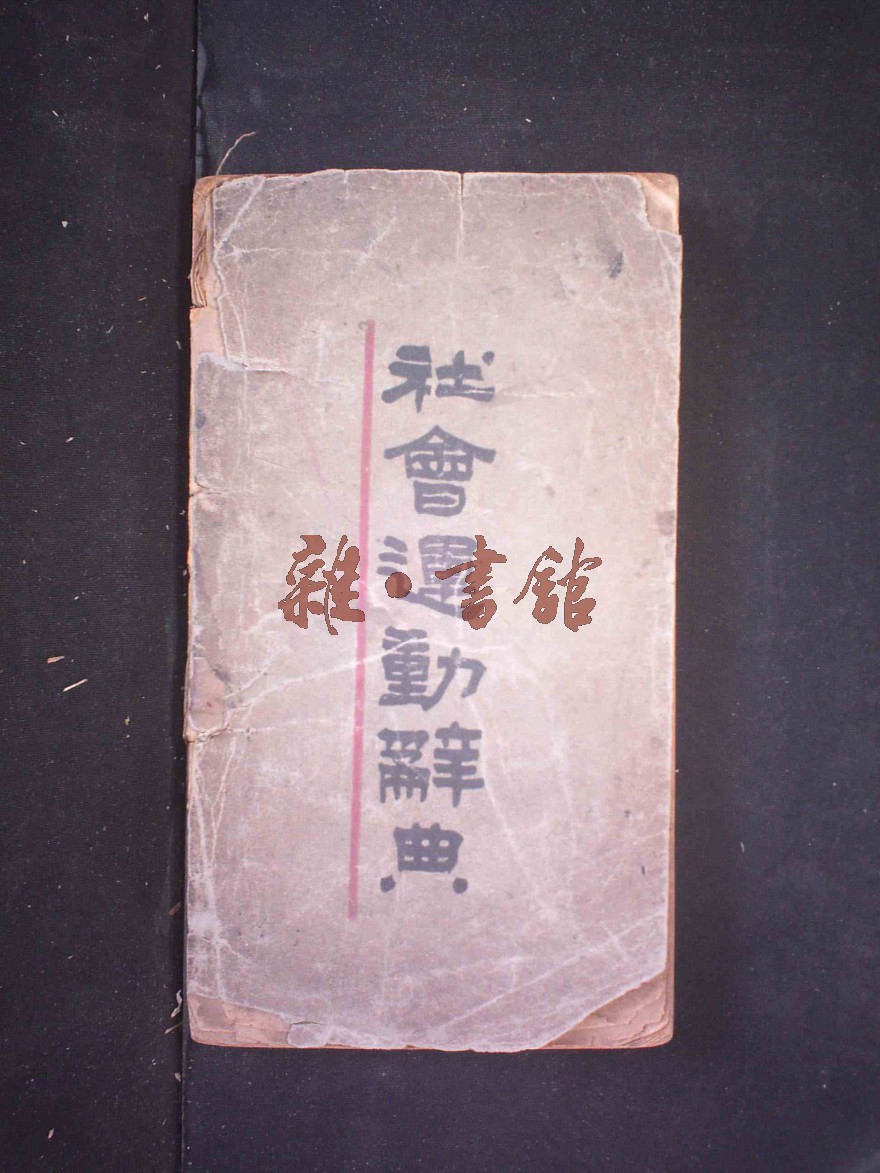 社會運動辭典
雜·書館